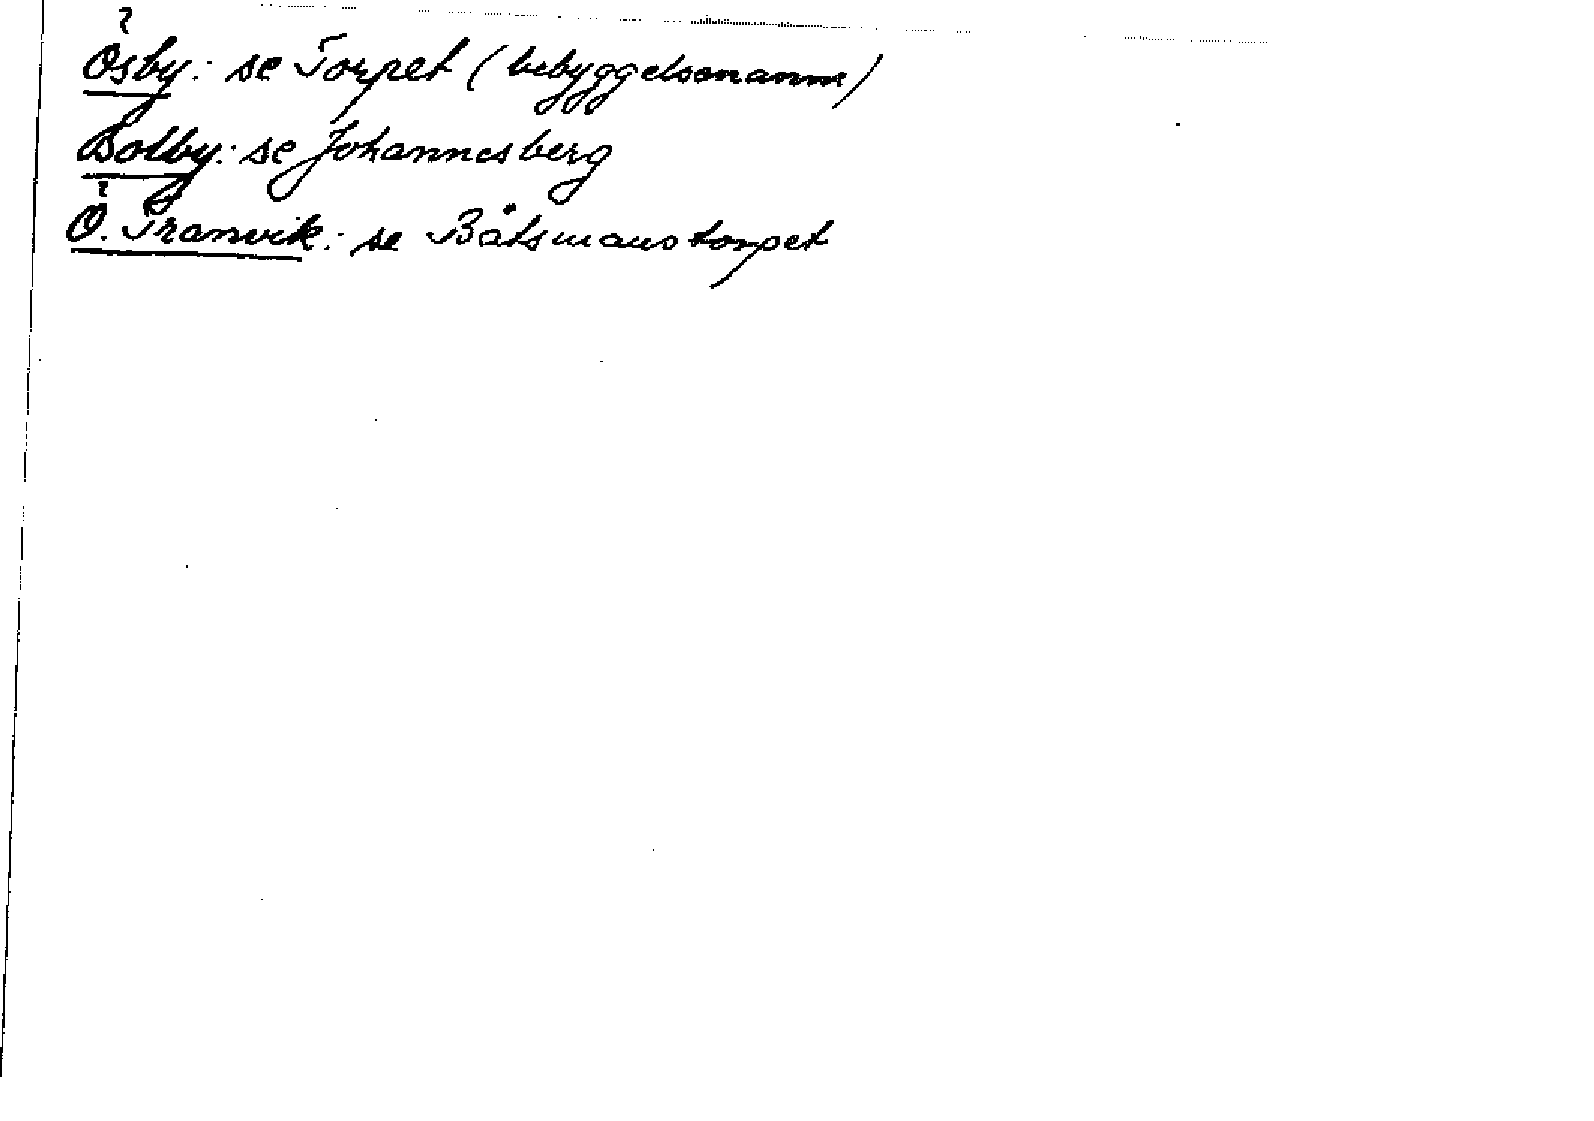 Ösby: se Torpet (bebyggelsenamn)
Botby: se Johannesberg
Ö. Tranvik: se Båtsmanstorpet